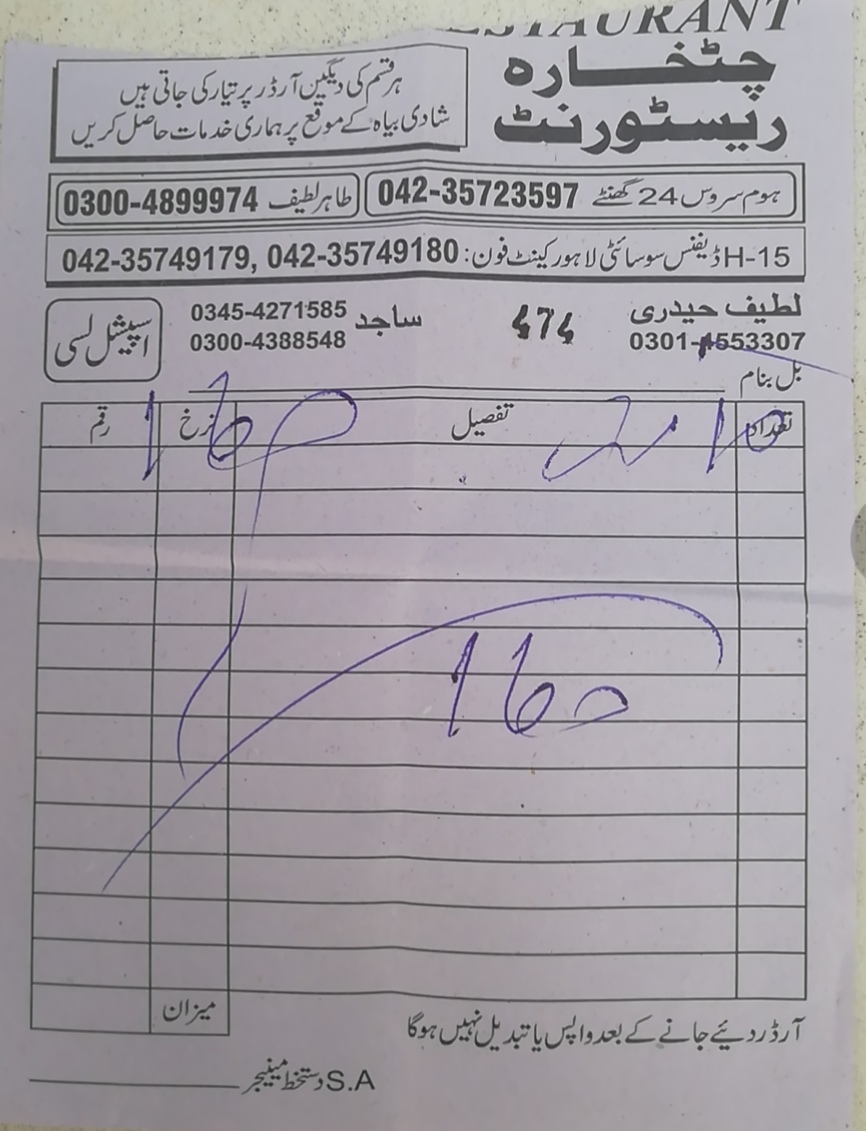 چٹخارہ
ریسٹورنٹ
ہر قسم کی دیگیں آرڈر پر تیار کی جاتی ہیں
شادی بیاہ کے موقع پر ہماری خدمات حاصل کریں
ہوم سروس 24 گھنٹے 042-35723597
طاہر لطیف 0300-4899974
H-15 ڈیفنس سوسائٹی لاہور کینٹ فون: 042-35749179, 042-35749180
لطیف حیدری
0301-4553307
474
ساجد 0345-4271585
0300-4388548
اسپیشل لسی
بل بنام
تعداد تفصیل نرخ رقم
160
160
میزان
آرڈر دئیے جانے کے بعد واپس یا تبدیل نہیں ہوگا
S.A دستخط مینیجر